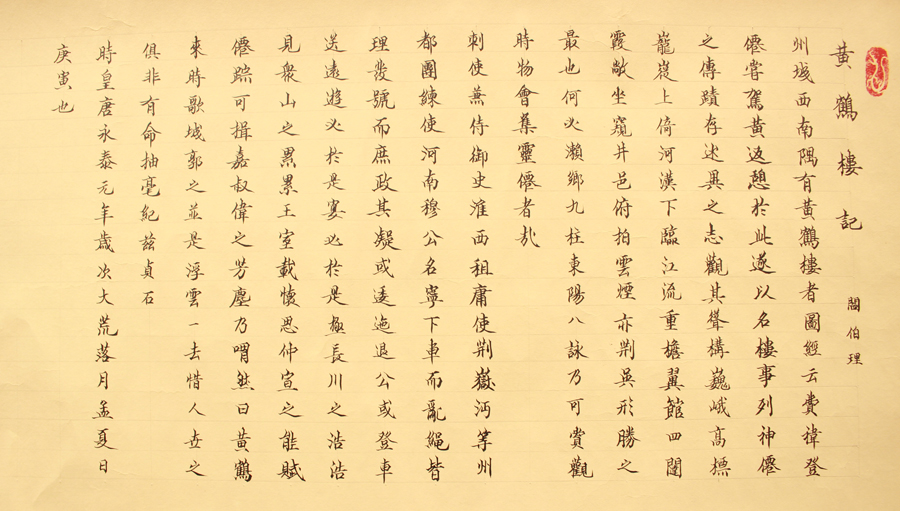 黃鶴樓記
閻伯理
州城西南隅有黃鶴樓者圖經云費禕登
僊嘗駕黃返憩於此遂以名樓事列神僊
之傳蹟存述異之志觀其聳構巍峨高標
巃嵸上倚河漢下臨江流重檐翼館四闥
霞敞坐窺井邑俯拍雲煙亦荆吳形勝之
最也何必瀨鄉九柱東陽八詠乃可賞觀
時物會集靈僊者哉
刺使兼侍御史淮西租庸使荆嶽沔等州
都團練使河南穆公名寧下車而亂繩皆
理發號而庶政其凝或逶迤退公或登車
送遠遊必於是宴必於是極長川之浩浩
見衆山之累累王室載懷思仲宣之能賦
僊踪可揖嘉叔偉之芳塵乃喟然曰黃鶴
來時歌城郭之並是浮雲一去惜人世之
俱非有命抽毫紀茲貞石
時皇唐永泰元年歲次大荒落月孟夏日
庚寅也